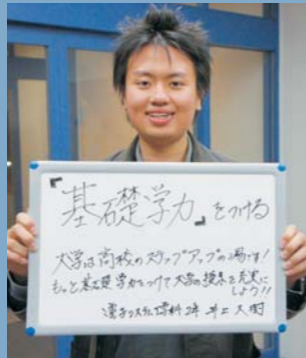 『基礎学力』をつける
大学は高校のステップアップの場です!
もっと基礎学力をつけて大学の授業を充実に
しよう!!
電子システム工学科 2年 井上 大樹